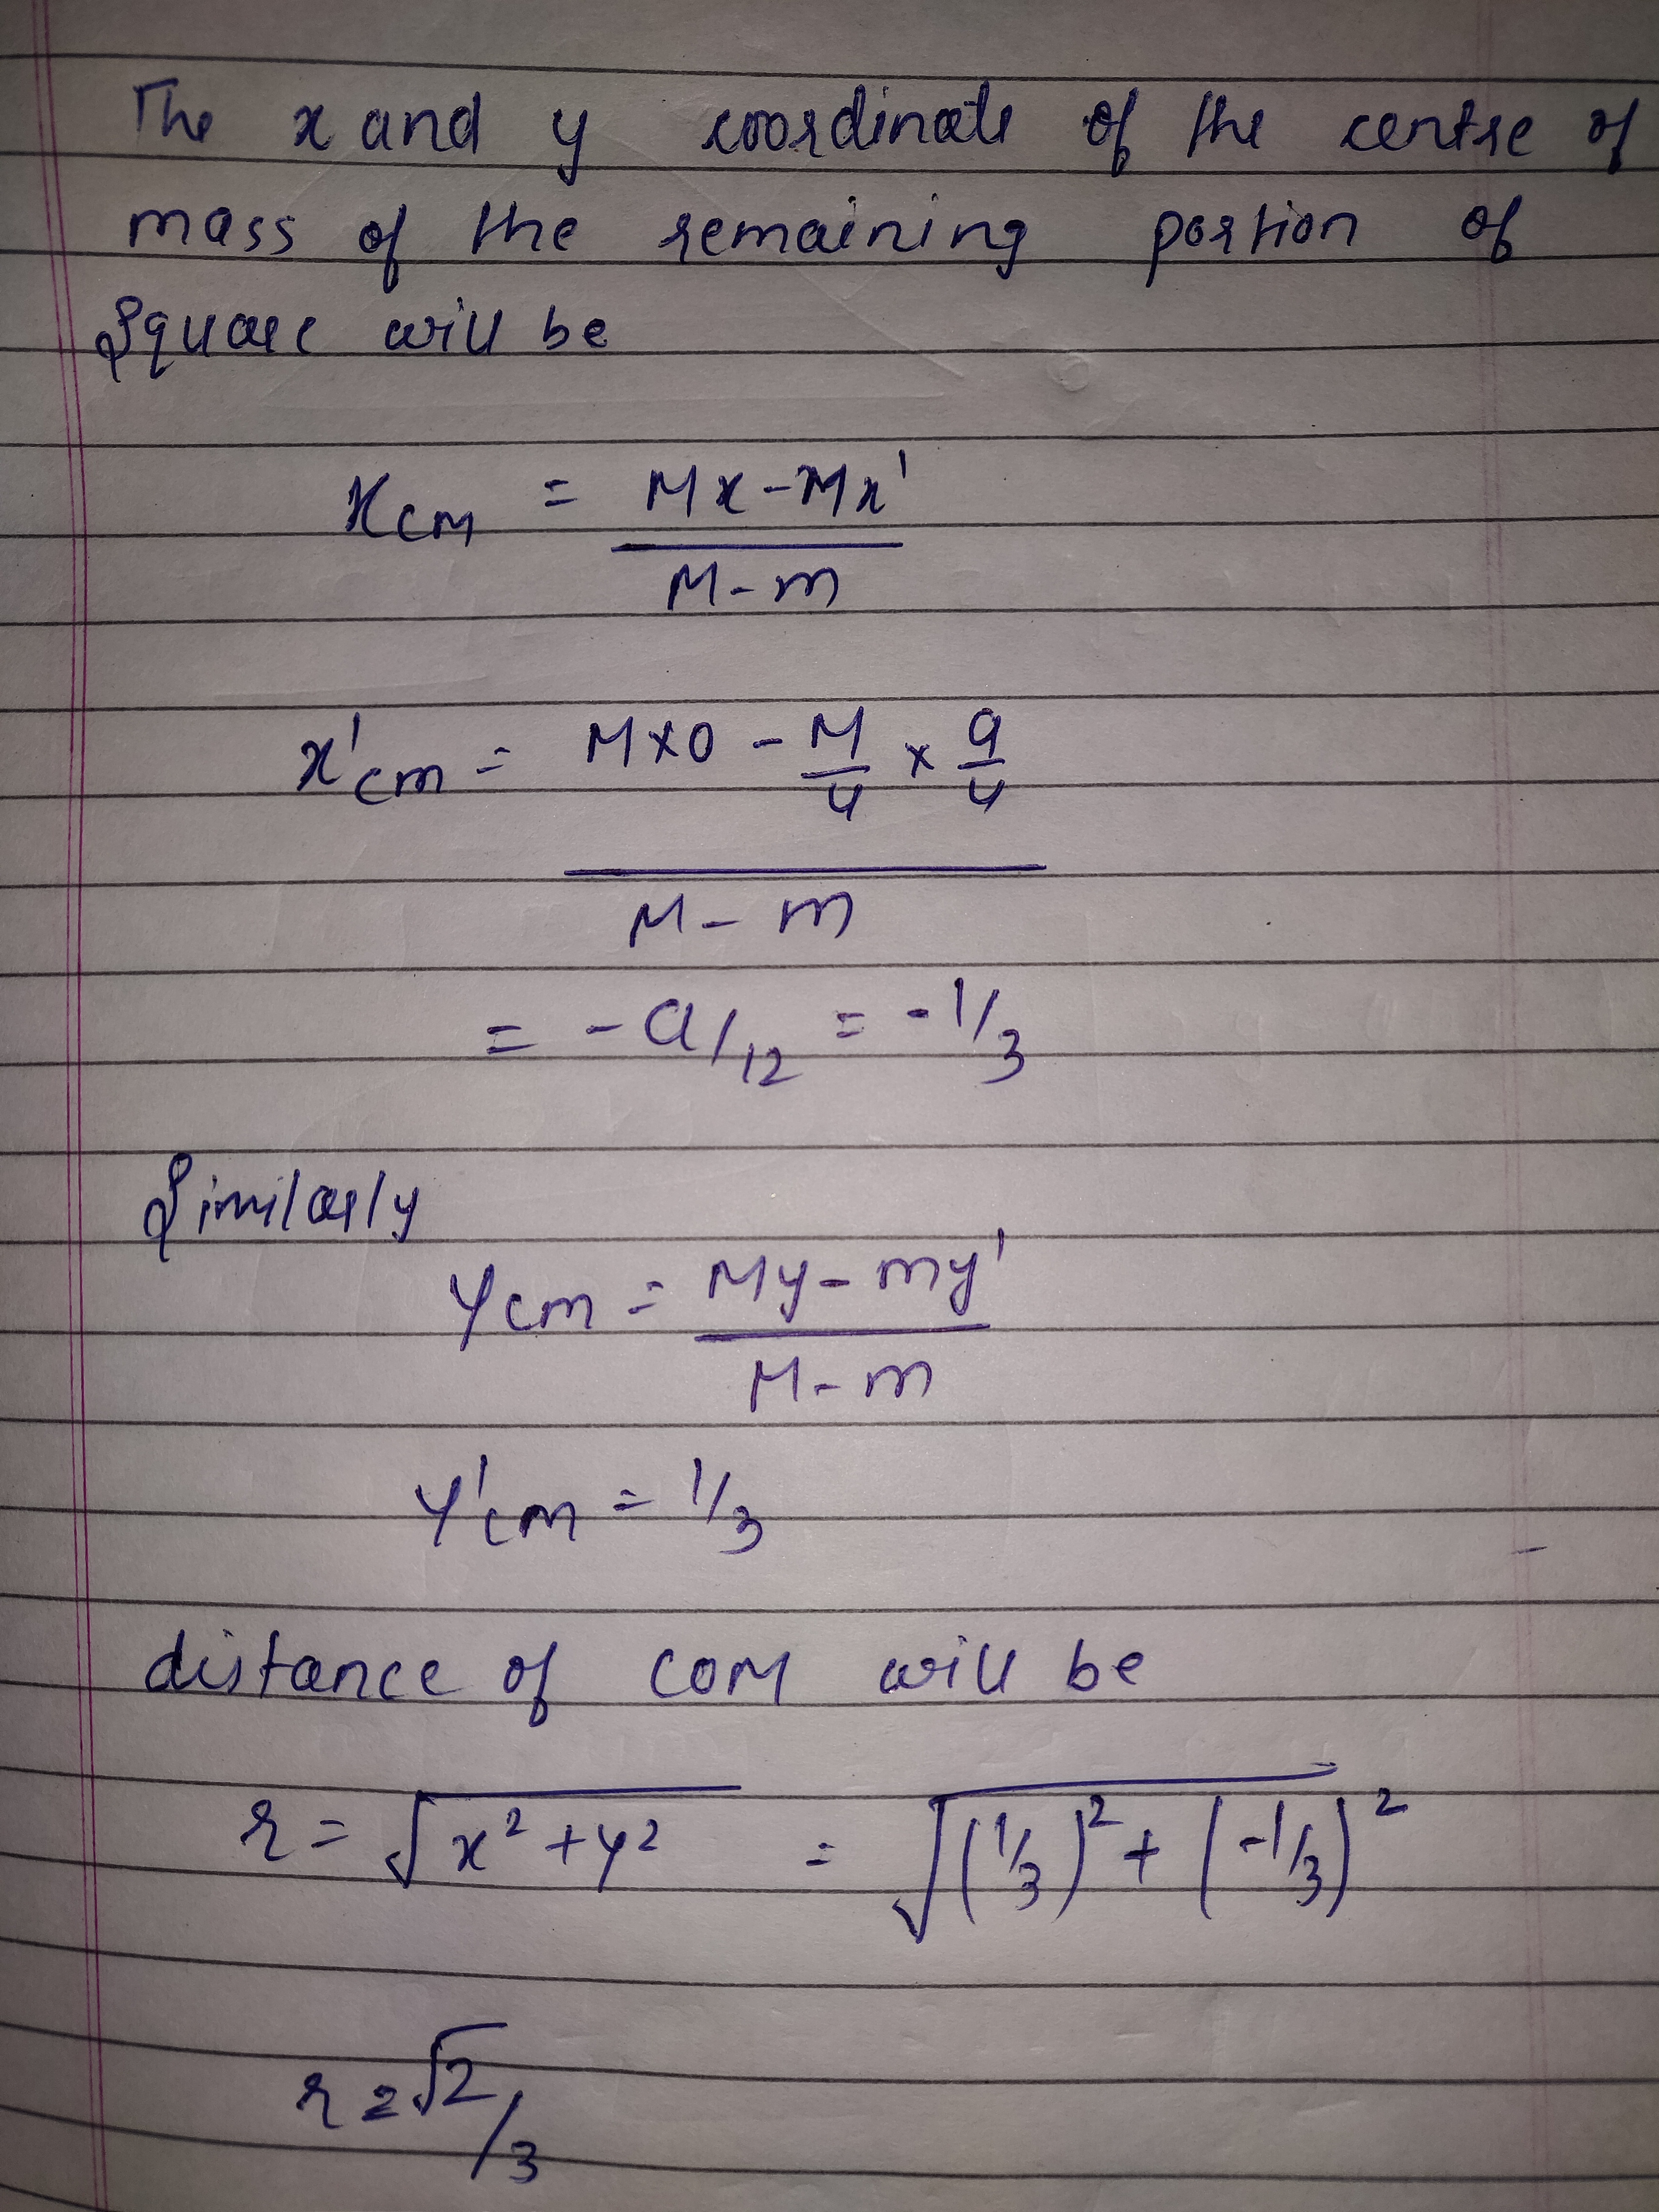 The x and y coordinate of the centre of
mass of the remaining portion of
Square will be
xcm = Mx - Mx'
M - m
x'cm = M×0 - M/4 × a/4
M - m
= -a/12 = -1/3
Similarly
Ycm = My - my'
M - m
Y'cm = 1/3
distance of COM will be
r = √x² + y² = √(1/3)² + (-1/3)²
r = √2/3